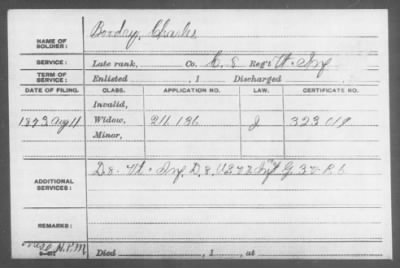 NAME OF SOLDIER: Boodry, Charles
SERVICE: Late rank, Co. C. 8 Reg't Vt. Inf
TERM OF SERVICE: Enlisted , 1 Discharged
DATE OF FILING. CLASS. APPLICATION NO. LAW. CERTIFICATE NO.
Invalid,
1873 Aug 11 Widow, 211 136
Minor,
ADDITIONAL SERVICES: D. 8. Vt. Inf. D. 8. U.S. Inf
REMARKS:
Died , 1 , at